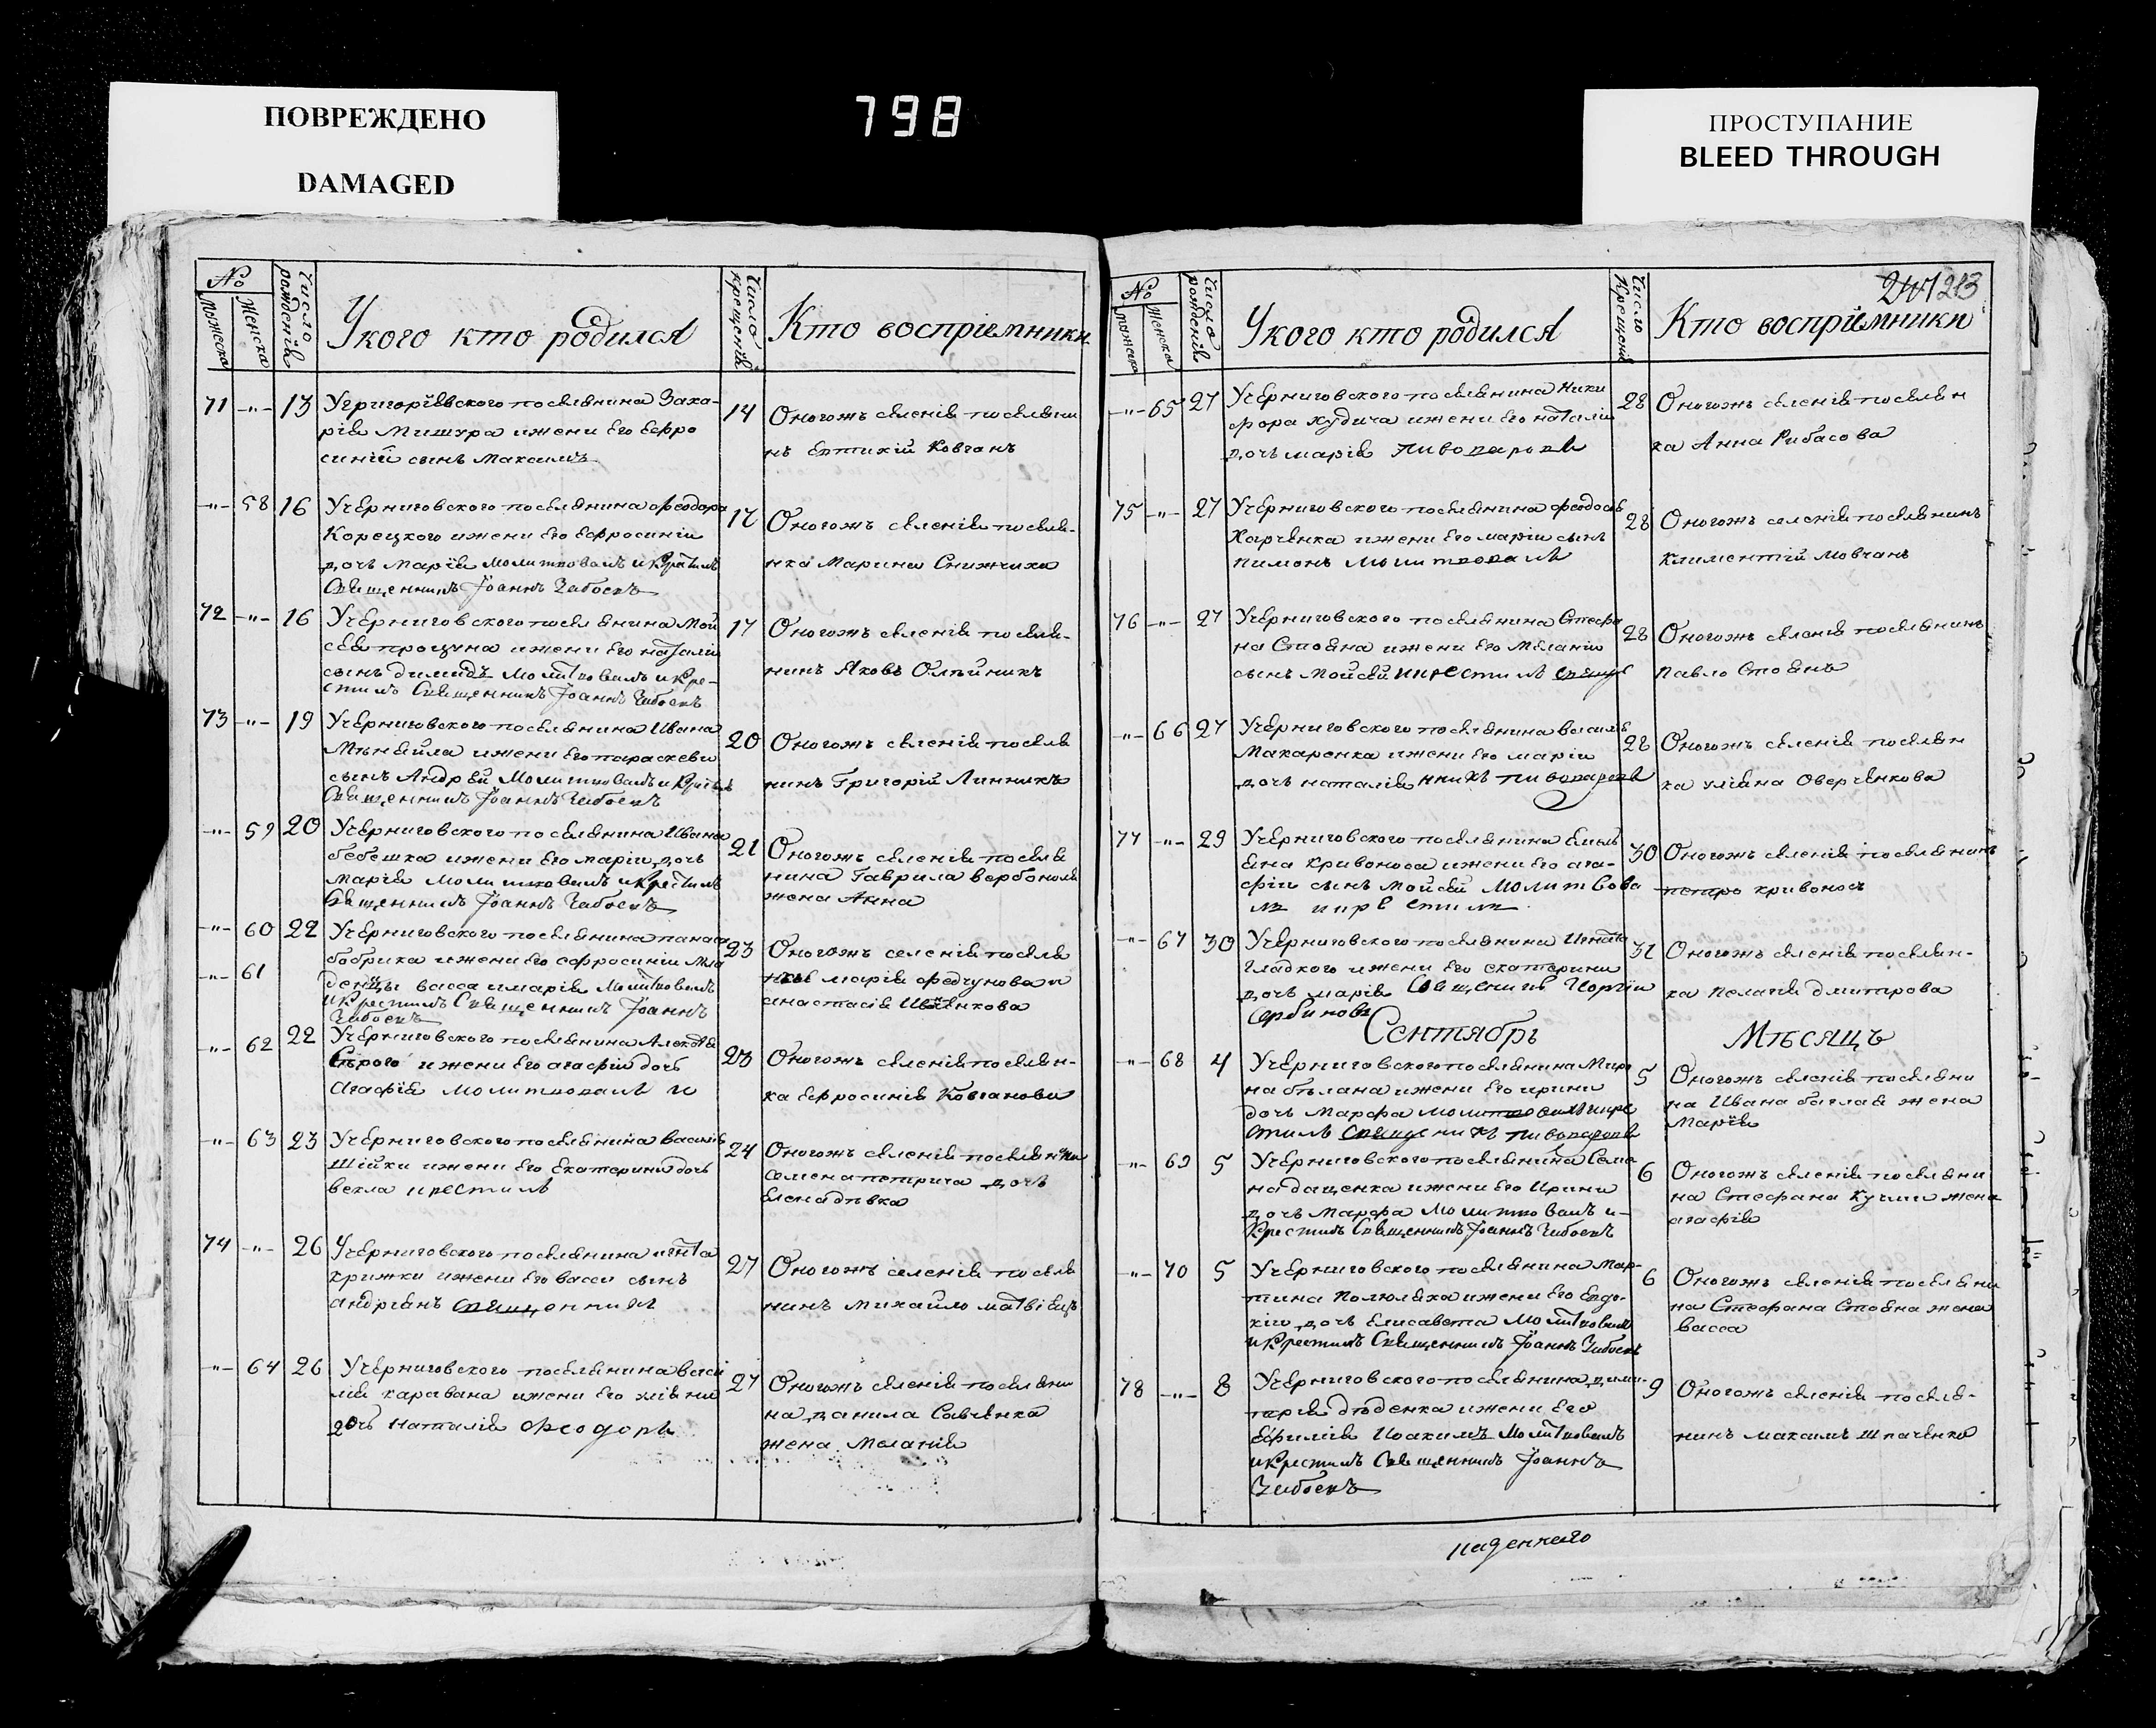 ПОВРЕЖДЕНО
DAMAGED
798
ПРОСТУПАНИЕ
BLEED THROUGH
№
Мужеска
Женска
Число рожденія
Укого кто родился
Число крещенія
Кто воспріемники
71 -"- 13 Угригоріевского поселянина Заха-
рія Мишура ижени Его Ефро
синіи сынъ Максимъ
14 Оногожъ селенія поселяни
нъ Евтихій Ковганъ
-"- 58 16 Учерниговского поселянина феодора
Корецкого ижени Его Ефросиніи
дочь Марія молитвовалъ и Крестилъ
Священникъ Іоаннъ
17 Оногожъ селенія поселя-
нка Марина Снижчиха
72 -"- 16 Учерниговского поселянина Мой
сея процуна ижени Его наталіи
сынъ Молитвовалъ и Кре-
стилъ Священникъ Іоаннъ
17 Оногожъ селенія поселя-
нинъ Яковъ Олѣйникъ
73 -"- 19 Учерниговского поселянина Ивана
ижени Его параскеви
сынъ Андрей Молитвовалъ и Крестилъ
Священникъ Іоаннъ
20 Оногожъ селенія поселя
нинъ Григорій Линникъ
-"- 59 20 Учерниговского поселянина Ивана
бебешка ижени Его маріи дочь
марія молитвовалъ и Крестилъ
Священникъ Іоаннъ
21 Оногожъ селенія поселя
нина Гаврила
жена Анна
-"- 60 22 Учерниговского поселянина панаса
-"- 61 бобрика ижени Его ефросиніи мла
денцы васса имарія Молитвовалъ
и Крестилъ Священникъ Іоаннъ
23 Оногожъ селенія поселя
марія федчунова и
анастасія
-"- 62 22 Учерниговского поселянина Алексѣя
Сѣрого ижени Его агафіи дочь
Агафія молитвовалъ и
23 Оногожъ селенія поселян-
ка Ефросинія Ковганова
-"- 63 23 Учерниговского поселянина василія
Шійки ижени Его Екатерини дочь
векла икрестилъ
24 Оногожъ селенія поселянина
семена петрича дочь
Елена дѣвка
74 -"- 26 Учерниговского поселянина игната
крижки ижени Его васси сынъ
андріянъ священникъ
27 Оногожъ селенія поселя
нинъ михайло матвіецъ
-"- 64 26 Учерниговского поселянина васи
лія каравана ижени Его уліяни
дочь наталія Феодоръ
27 Оногожъ селенія поселяни
на данила Савченка
жена Меланія
213
№
Мужеска
Женска
Число рожденія
Укого кто родился
Число Крещенія
Кто воспріемники
-"- 65 27 Учерниговского поселянина Ники
фора худича ижени Его наталіи
дочь марія пивоваровъ
28 Оногожъ селенія поселян
ка Анна Рибасова
75 -"- 27 Учерниговского поселянина феодосія
Харченка ижени Его маріи сынъ
пимонъ молитвовалъ
28 Оногожъ селенія поселянинъ
Климентій мовчанъ
76 -"- 27 Учерниговского поселянина Стефа
на Стояна ижени Его Меланіи
сынъ Мойсей икрестилъ
28 Оногожъ селенія поселянинъ
Павло Стоянъ
-"- 66 27 Учерниговского поселянина василія
Макаренка ижени Его маріи
дочь наталія никъ пивоваровъ
28 Оногожъ селенія поселян
ка уліяна Оверченкова
77 -"- 29 Учерниговского поселянина Емель
яна кривоноса ижени Его ага-
фіи сынъ мойсей молитвова
лъ икрестилъ
30 Оногожъ селенія поселянинъ
петро кривоносъ
-"- 67 30 Учерниговского поселянина Игната
Гладкого ижени Его екатерини
дочь марія Священикъ Георгіи
Сербиновъ
31 Оногожъ селенія поселян-
ка пелагія дмитрова
Сентябрь Мѣсяцъ
-"- 68 4 Учерниговского поселянина Миро
на бѣлана ижени Его ирини
дочь Марфа молитвовалъ икре
стилъ священикъ пивоваровъ
5 Оногожъ селенія поселяни
на Ивана баглая жена
Марія
-"- 69 5 Учерниговского поселянина Семе
на даценка ижени Его Ирини
дочь Марфа Молитвовалъ и-
Крестилъ Священникъ Іоаннъ
6 Оногожъ селенія поселяни
на Стефана кучми жена
агафія
-"- 70 5 Учерниговского поселянина Мар-
тина Полюляха ижени Его Евдо-
кіи дочь Елисавета Молитвовалъ
и Крестилъ Священникъ Іоаннъ
6 Оногожъ селенія поселяни
на Стефана Стояна жена
васса
78 -"- 8 Учерниговского поселянина дими-
трія дѣденка ижени Его
Ефиміи Иоакимъ Молитвовалъ
и Крестилъ Священникъ Іоаннъ
9 Оногожъ селенія поселя-
нинъ максимъ шпаченко